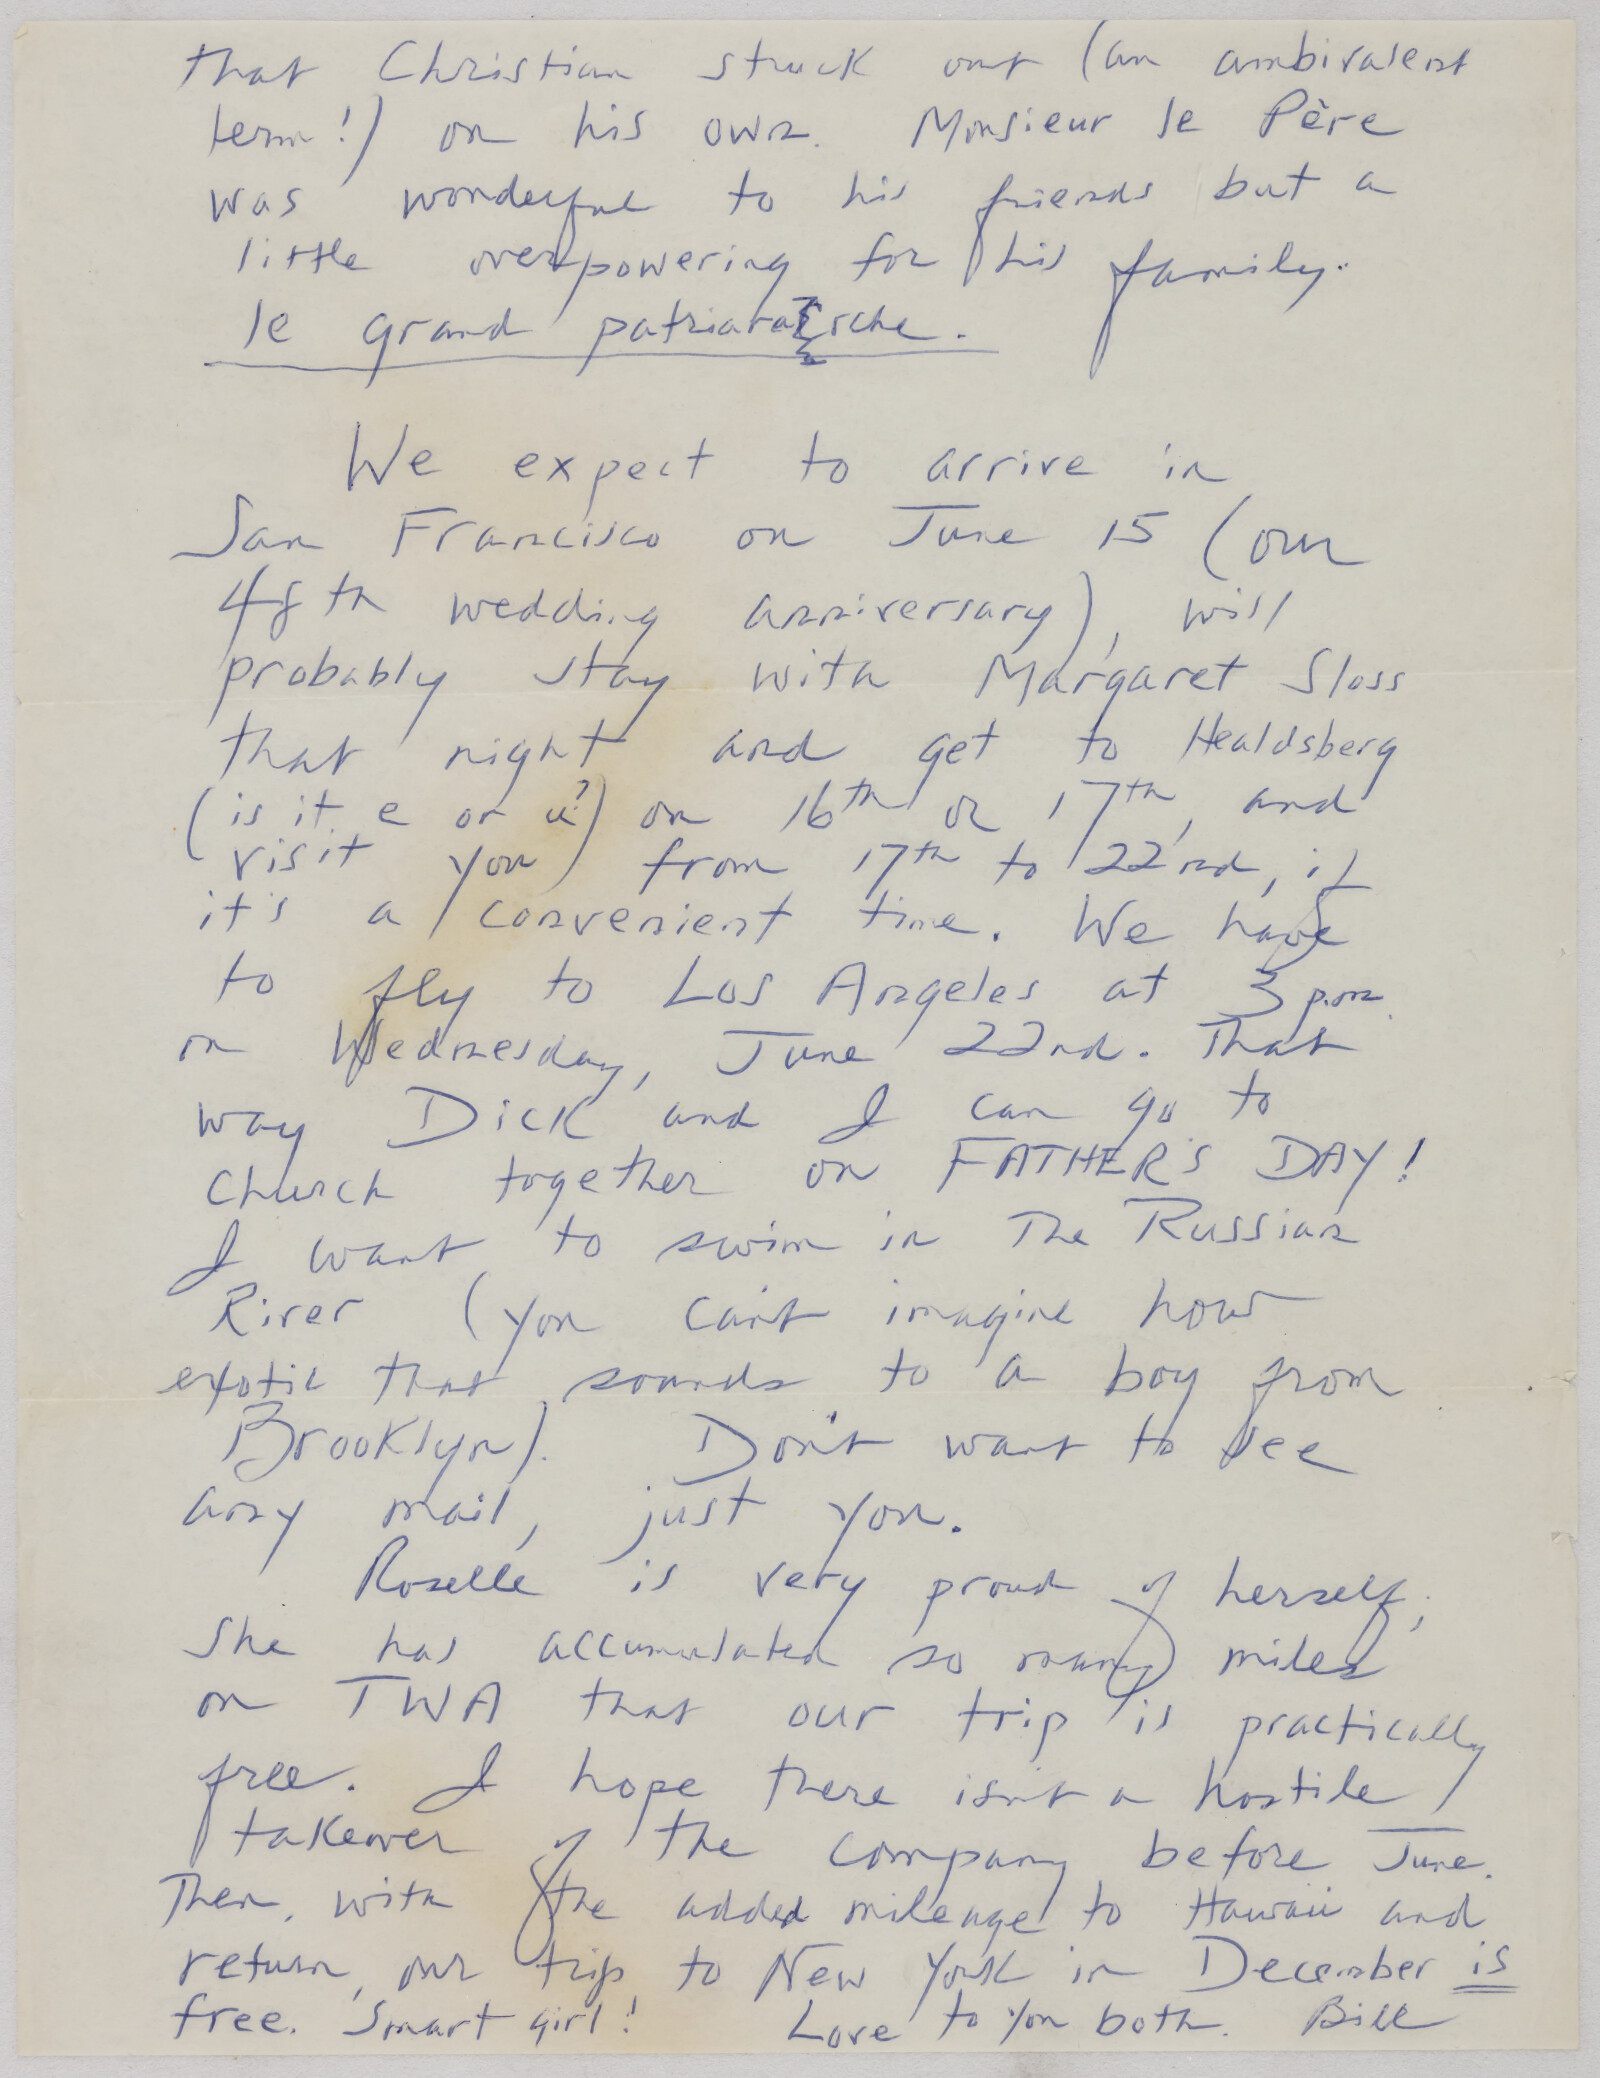 that Christian struck out (an ambivalent
term!) on his own. Monsieur le Père
was wonderful to his friends but a
little overpowering for his family.
le grand patriararche.
We expect to arrive in
San Francisco on June 15 (our
48th wedding anniversary), will
probably stay with Margaret Sloss
that night and get to Healdsberg
(is it e or u?) on 16th or 17th, and
visit you from 17th to 22nd, if
it's a convenient time. We have
to fly to Los Angeles at 3 p.m.
on Wednesday, June 22nd. That
way Dick and I can go to
church together on FATHER'S DAY!
I want to swim in The Russian
River (you can't imagine how
exotic that sounds to a boy from
Brooklyn). Don't want to see
any mail, just you.
Roselle is very proud of herself;
she has accumulated so many miles
on TWA that our trip is practically
free. I hope there isn't a hostile
takeover of the company before June.
Then, with the added mileage to Hawaii and
return, our trip to New York in December is
free. Smart girl! Love to you both. Bill